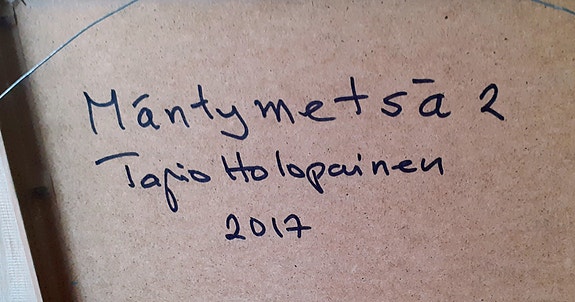 Mäntymetsä 2
Tapio Holopainen
2017